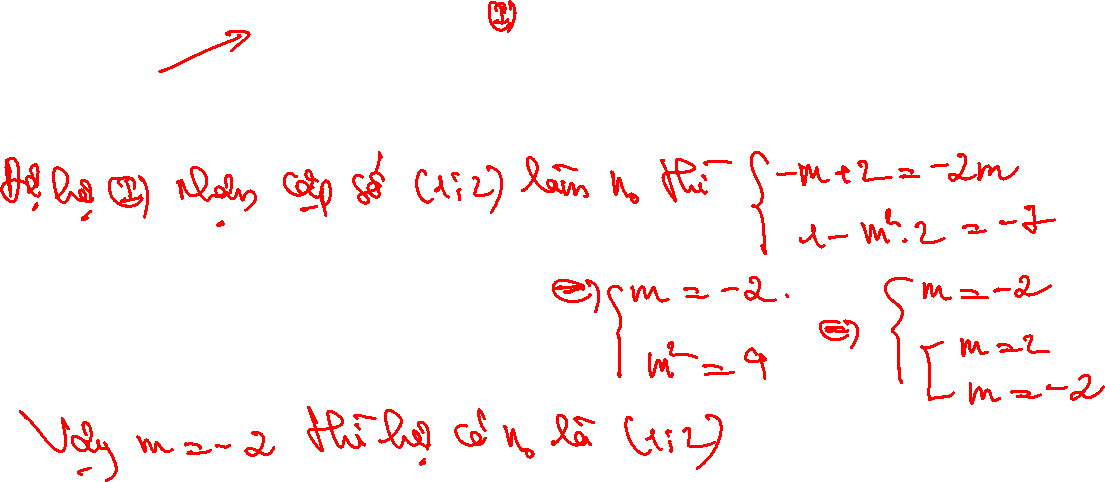 (I)
Để hệ (I) nhận cặp số (1; 2) làm n₀ thì { -m + 2 = -2m
1 - m². 2 = -7
⇔ { m = -2. ⇔ { m = -2
m² = 4 [ m = 2
m = -2
Vậy m = -2 thì hệ có n₀ là (1; 2)